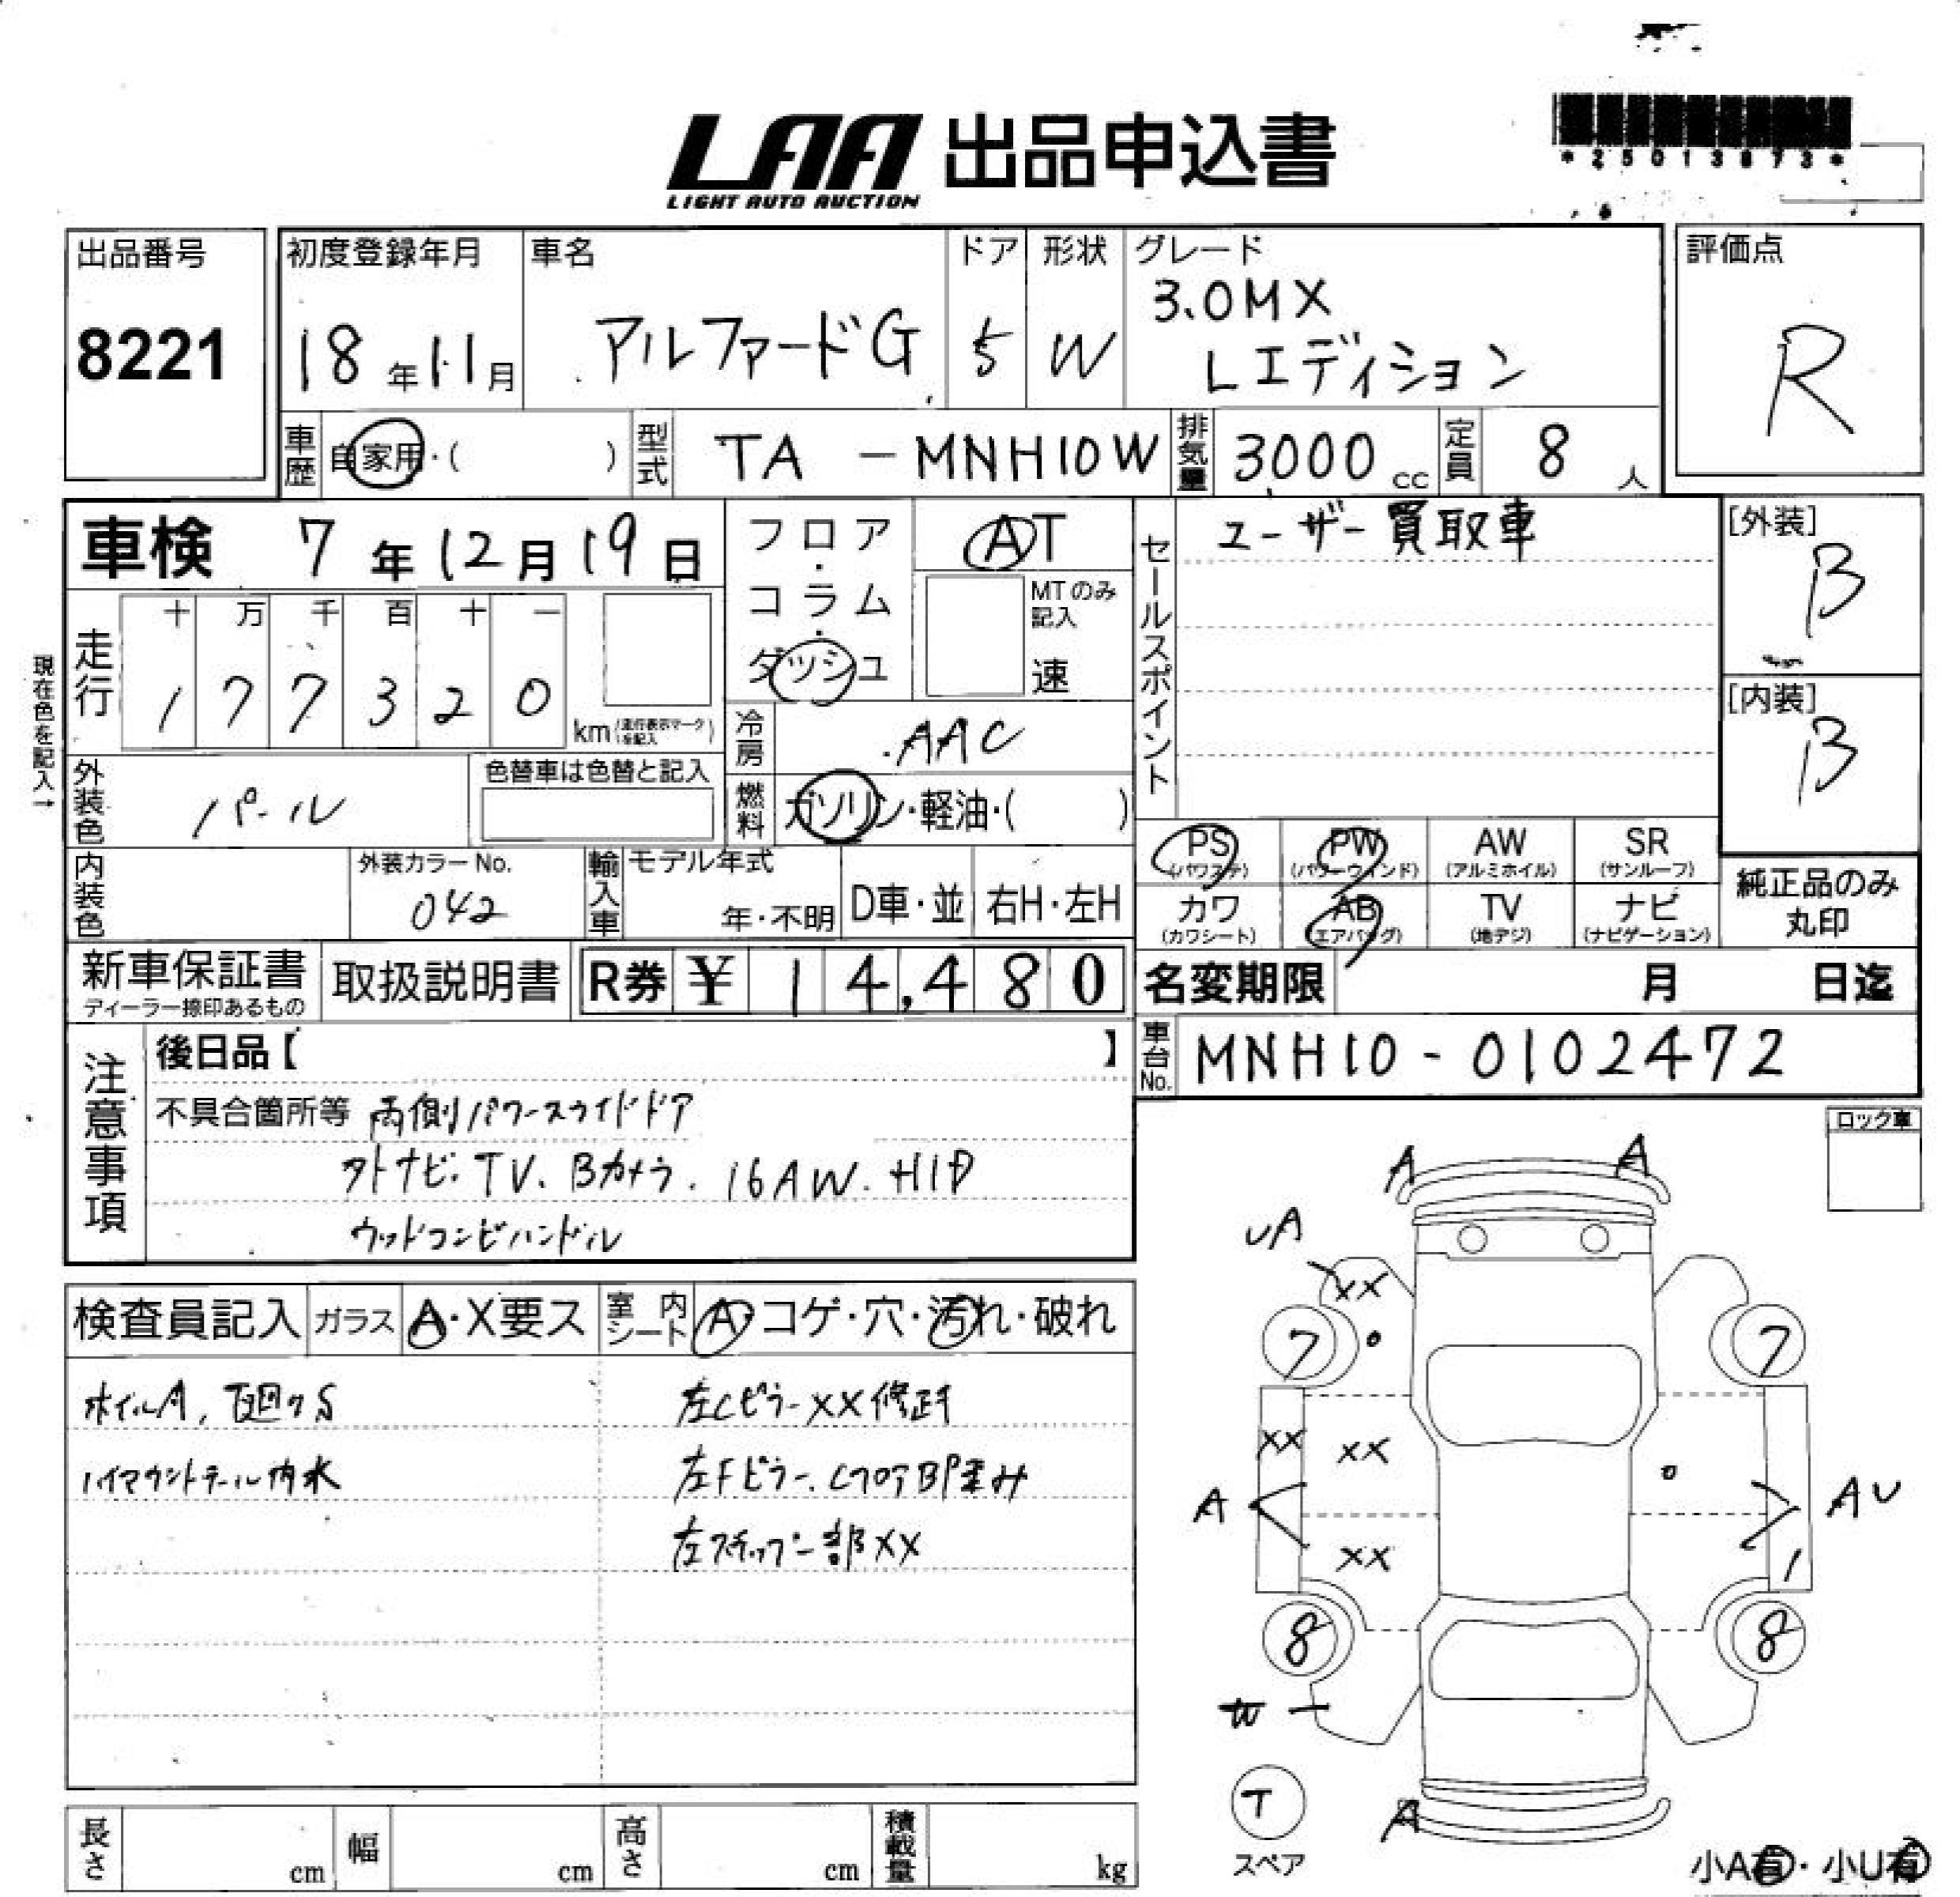 LAA 出品申込書
LIGHT AUTO AUCTION
*25013873*
出品番号
8221
初度登録年月
18年11月
車名
アルファードG
ドア
5
形状
W
グレード
3.0MX
Lエディション
評価点
R
車歴
自家用・( )
型式
TA - MNH10W
排気量
3000cc
定員
8人
車検 7年12月19日
フロア・コラム・ダッシュ
AT
MTのみ記入
速
セールスポイント
ユーザー買取車
[外装]
B
[内装]
B
現在色を記入→
走行
十 万 千 百 十 一
1 7 7 3 2 0
km (走行表示マークを記入)
冷房
AAC
外装色
パール
色替車は色替と記入
燃料
ガソリン・軽油・( )
内装色
外装カラーNo.
042
輸入車
モデル年式
年・不明
D車・並
右H・左H
PS (パワステ)
PW (パワーウインド)
AW (アルミホイル)
SR (サンルーフ)
カワ (カワシート)
AB (エアバッグ)
TV (地デジ)
ナビ (ナビゲーション)
純正品のみ丸印
新車保証書
ディーラー捺印あるもの
取扱説明書
R券 ¥ 14,480
名変期限 月 日迄
車台No.
MNH10-0102472
注意事項
後日品【 】
不具合箇所等 両側パワースライドドア
外ナビ.TV、Bカメラ.16AW.HID
ウッドコンビハンドル
ロック車
検査員記入
ガラス
A・X要ス
室内シート
A・コゲ・穴・汚れ・破れ
ホイルA, 下廻りS
ハイマウントテール内水
左Cピラー XX 修正キ
左Fピラー、CフロアBP歪み
左ステップ部XX
A
A
UA
XX
7
7
XX
XX
A
AU
XX
8
8
T
スペア
A
小A有・小U有
長さ cm
幅 cm
高さ cm
積載量 kg